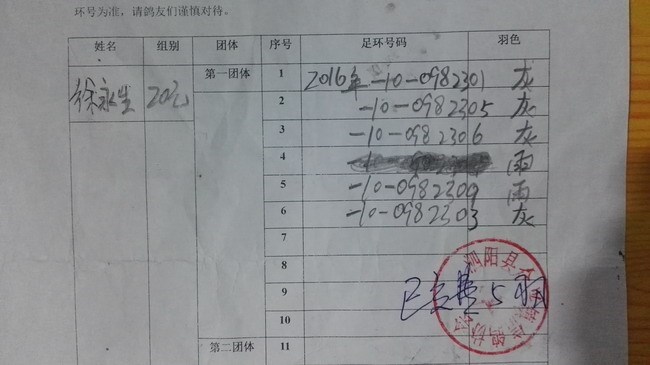 环号为准，请鸽友们谨慎对待。
姓名 组别 团体 序号 足环号码 羽色
徐永生 20元 第一团体 1 2016年-10-0982301 灰
2 -10-0982305 灰
3 -10-0982306 灰
4 -10- 雨
5 -10-0982309 雨
6 -10-0982303 灰
7
8
9
10
第二团体 11
泗阳县 信鸽协会
5羽